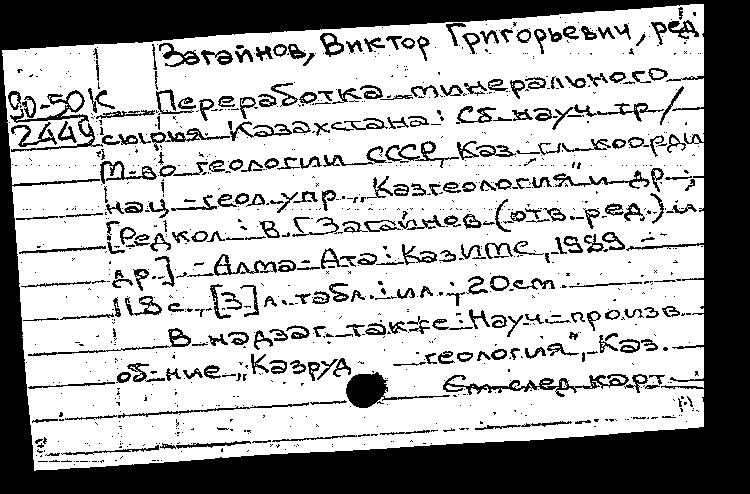 Загайнов, Виктор Григорьевич, ред.
90-50К Переработка минерального
2449 сырья Казахстана: Сб. науч. тр /
М-во геологии СССР, Каз. гл. коорди
нац.-геол. упр. „Казгеология" и др.;
[Редкол.: В. Г. Загайнов (отв. ред.) и
др.]. - Алма-Ата: КазИМС, 1989. -
118 с., [3] л. табл.: ил.; 20 см.
В надзаг. также: Науч.-произв.
об-ние „Казруд геология", Каз.
См. след. карт.